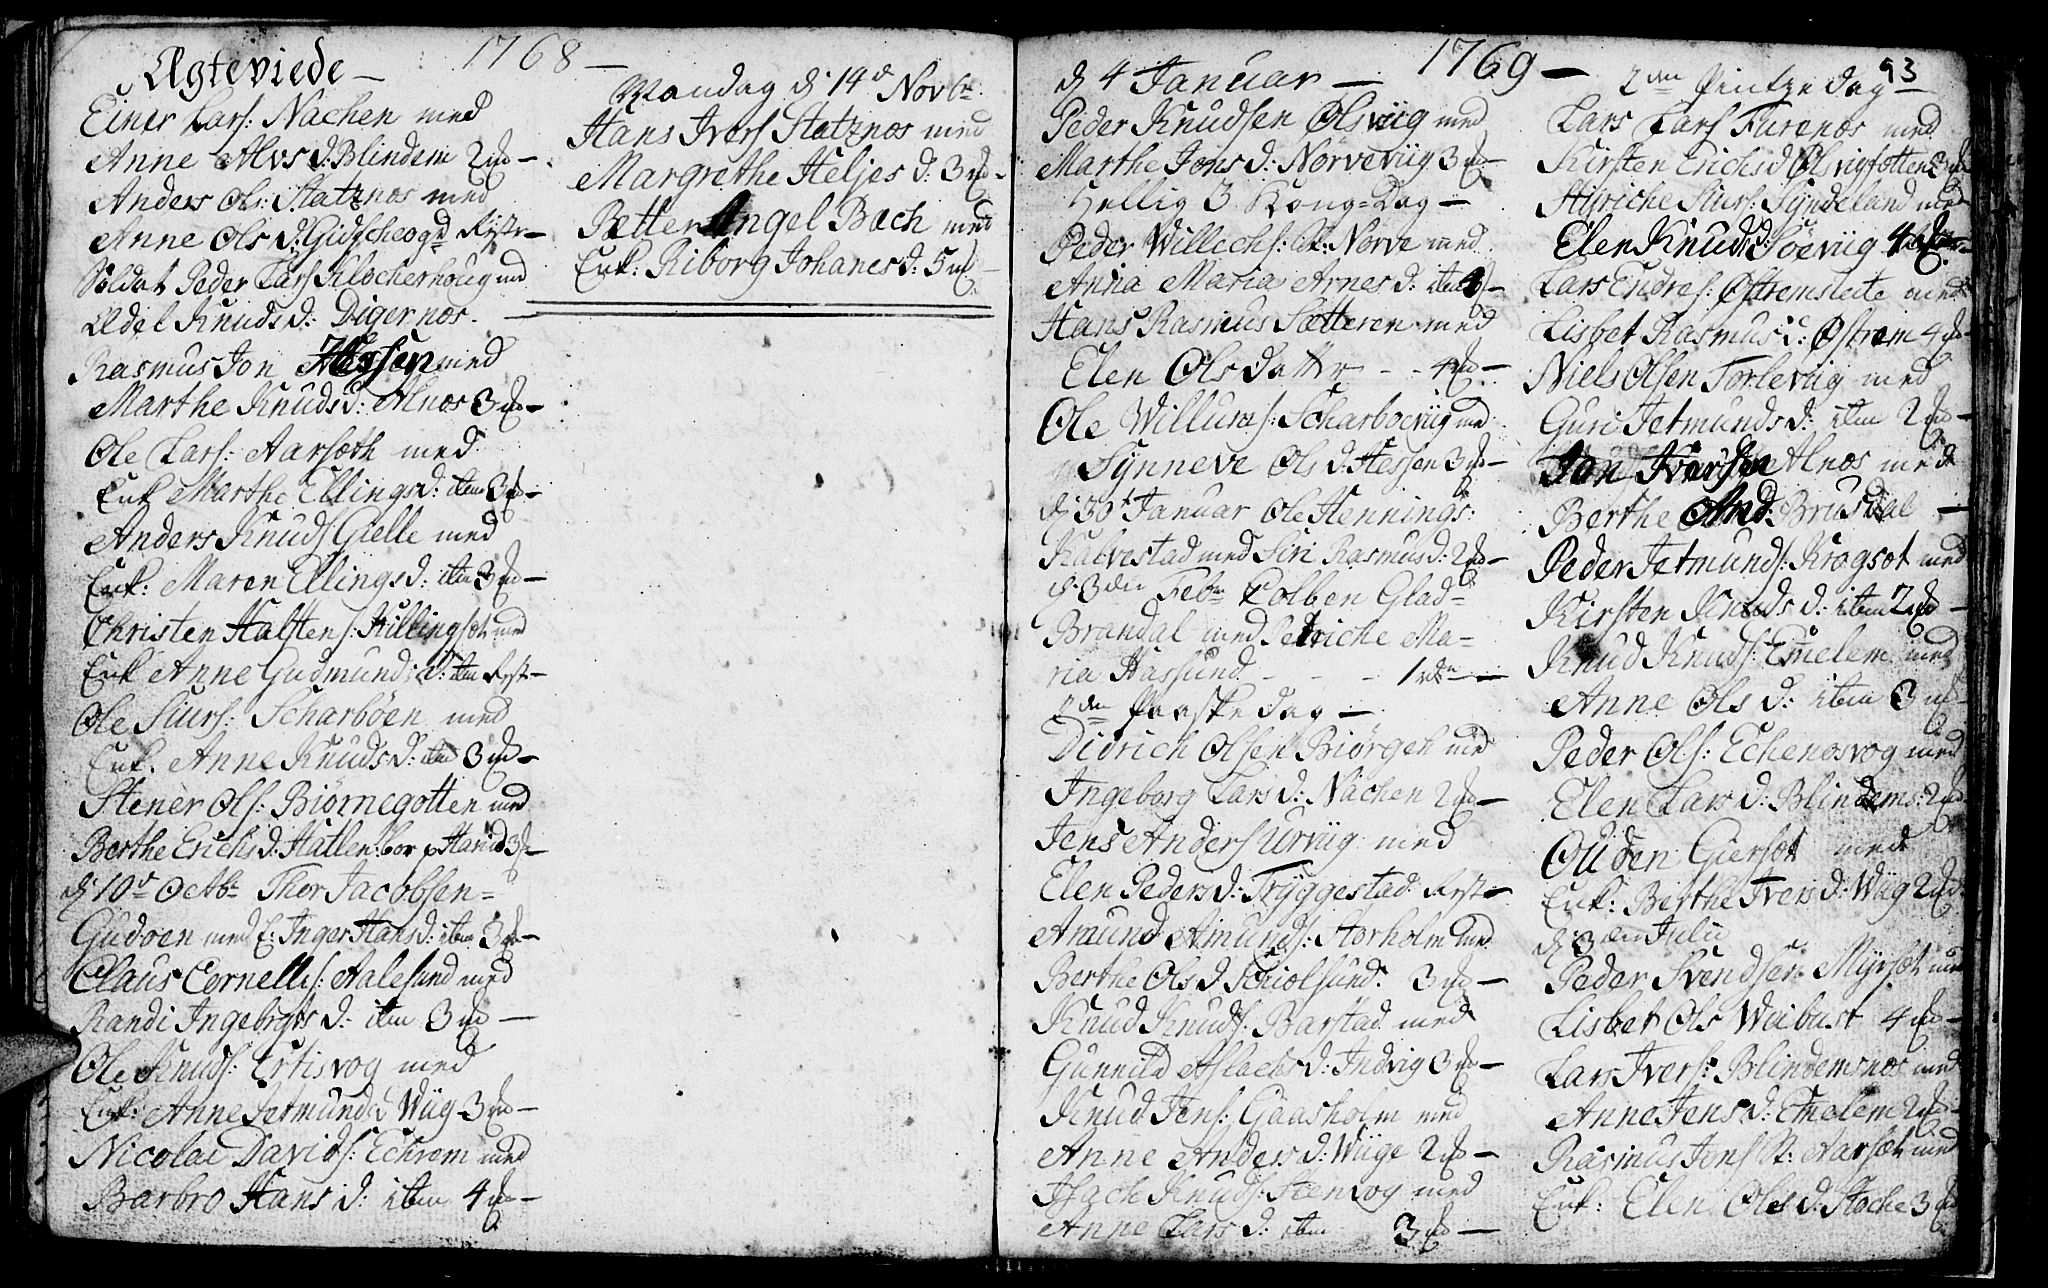 Ægteviede 1768
Einer Lars: Nachen med
Anne Alvs d: Blindem 2 md
Anders Ols: Statznos med
Anne Ols d: Gidscheogd
Soldat Peder Lars Klocherhoug md
Ædel Knuds d: Digernos.
Rasmus Jon Hessen med
Marthe Knuds d: Alnos 3 md
Ole Lars: Aarsæth med
Enk Marthe Ellings d: item 3 md
Anders Knuds Gielle med
Enk: Maren Ellings d: item 3 md
Christen Halsten s: Hillingsæt med
Enk Anne Gudmunds d: item
Ole Siurs: Scharbøen med
Enk: Anne Knuds d: item 3 md
Stener Ols: Biørnegotten med
Berthe Erichs d: Hatlen: bor p Harid 3
d: 10d Octbr Thor Jacobsen
Gudøen med E: Inger Hans d: item 3 md
Claus Cornelli s: Aalesund med
Randi Ingebrgts d: item 3 md
Ole Knuds: Ertisvog med
Enk: Anne Jetmunds d Wiig 3 md
Nicolai Davids: Echrem med
Barbro Hans d: item 4 md
Mandag d 14d Novbr
Hans Ivers Statznos med
Margrethe Heljes d: 3 md
Better Angel Bach med
Enk: Riborg Johanes d: 5 md
1769
d 4 Januar
Peder Knudsen Olsviig med
Marthe Jons d: Nørveviig 3 md
Hellig 3 Kong=Dag
Peder Willechs: St: Nørve med
Anna Maria Arnes d: item
Hans Rasmus Sætteren med
Elen Olsdattr 4 md
Ole Willums: Scharboeviig md
Synneve Ols d. Hessen 3 md
d 30t Januar Ole Hennings:
Kalvestad med Siri Rasmus d: 2 md
d: 3den Febr Colben Glad=
Brandal med Petriche Ma=
ria Hassund 1
2den Paaske dag
Didrich Olsen Biørgen md
Ingeborg Lars d: Nachen 2 md
Jens Anders Urviig med
Elen Peders d: Tryggestad
Amund Amunds: Storholm med
Berthe Ols d Schiolsund. 3 md
Knud Knuds: Barstad med
Gunnild Aslachs d: Indvig 3 md
Knud Jens: Gaasholm med
Anne Anders d: Wiige 2 md
Isach Knuds: Stenvog med
Anne Lars d. item 3 md
93
2den Pintze dag
Lars Lars Furenos med
Kirsten Erichs d Olsvigsotten 3 md
Siurs: Syndeland med
Elen Knuds d: Soeviig 4 md
Lars Endres: Østremsteite med
Lisbet Rasmus d: Østrem 4 md
Niels Olsen Torleviig med
Guri Jetmunds d: item 2 md
Jon Iversen Alnos med
Berthe And: Brusdal
Peder Jetmunds: Krogsæt med
Kirsten Knuds d: item 2 md
Knud Knuds: Emelem med
Anne Ols d: item 3 md
Peder Ols: Echenosvog med
Elen Lars d: Blindems: 2 md
Ouden Giersæt med
Enk: Berthe Ivers d: Wiig 2 md
d: 3den Julii
Peder Svendsen Myrsæt md
Lisbet Ols Weibust 4 md
Lars Ivers: Blindemsnos med
Anne Jens d: Emelem 2 md
Rasmus Jons St: Aarsæt med
Enk: Elen Ols d: Stoche 3 md